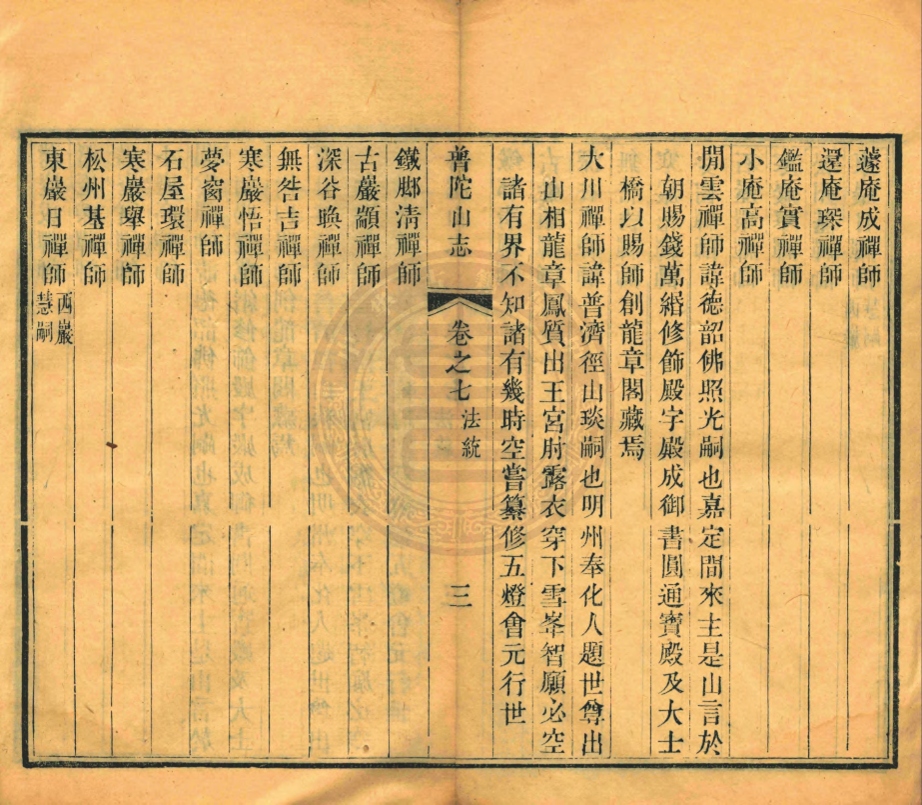 蘧庵成禪師
還庵琛禪師
鑑庵實禪師
小庵高禪師
閒雲禪師諱德韶佛照光嗣也嘉定間來主是山言於
朝賜錢萬緡修飾殿宇殿成御書圓通寶殿及大士
橋以賜師創龍章閣藏焉
大川禪師諱普濟徑山琰嗣也明州奉化人題世尊出
山相龍章鳳質出王宮肘露衣穿下雪峯智願必空
諸有界不知諸有幾時空嘗纂修五燈會元行世
普陀山志 卷之七 法統 三
鐵腳清禪師
古巖顓禪師
深谷喚禪師
無咎吉禪師
寒巖悟禪師
夢窗禪師
石屋環禪師
寒巖舉禪師
松州基禪師
東巖日禪師 西巖慧嗣